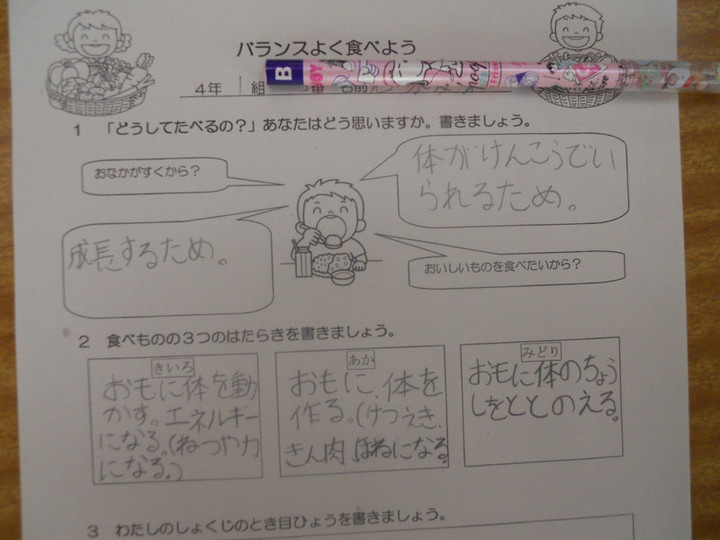 バランスよく食べよう
4年 組
B
1 「どうしてたべるの?」あなたはどう思いますか。書きましょう。
おなかがすくから?
体がけんこうでい
られるため。
成長するため。
おいしいものを食べたいから?
2 食べものの3つのはたらきを書きましょう。
きいろ
おもに体を動
かす。エネルギー
になる。(ねつや力
になる。)
あか
おもに、体を
作る。(けつえき、
きん肉、ほねになる。
みどり
おもに体のちょう
しをととのえる。
3 わたしのしょくじのとき目ひょうを書きましょう。